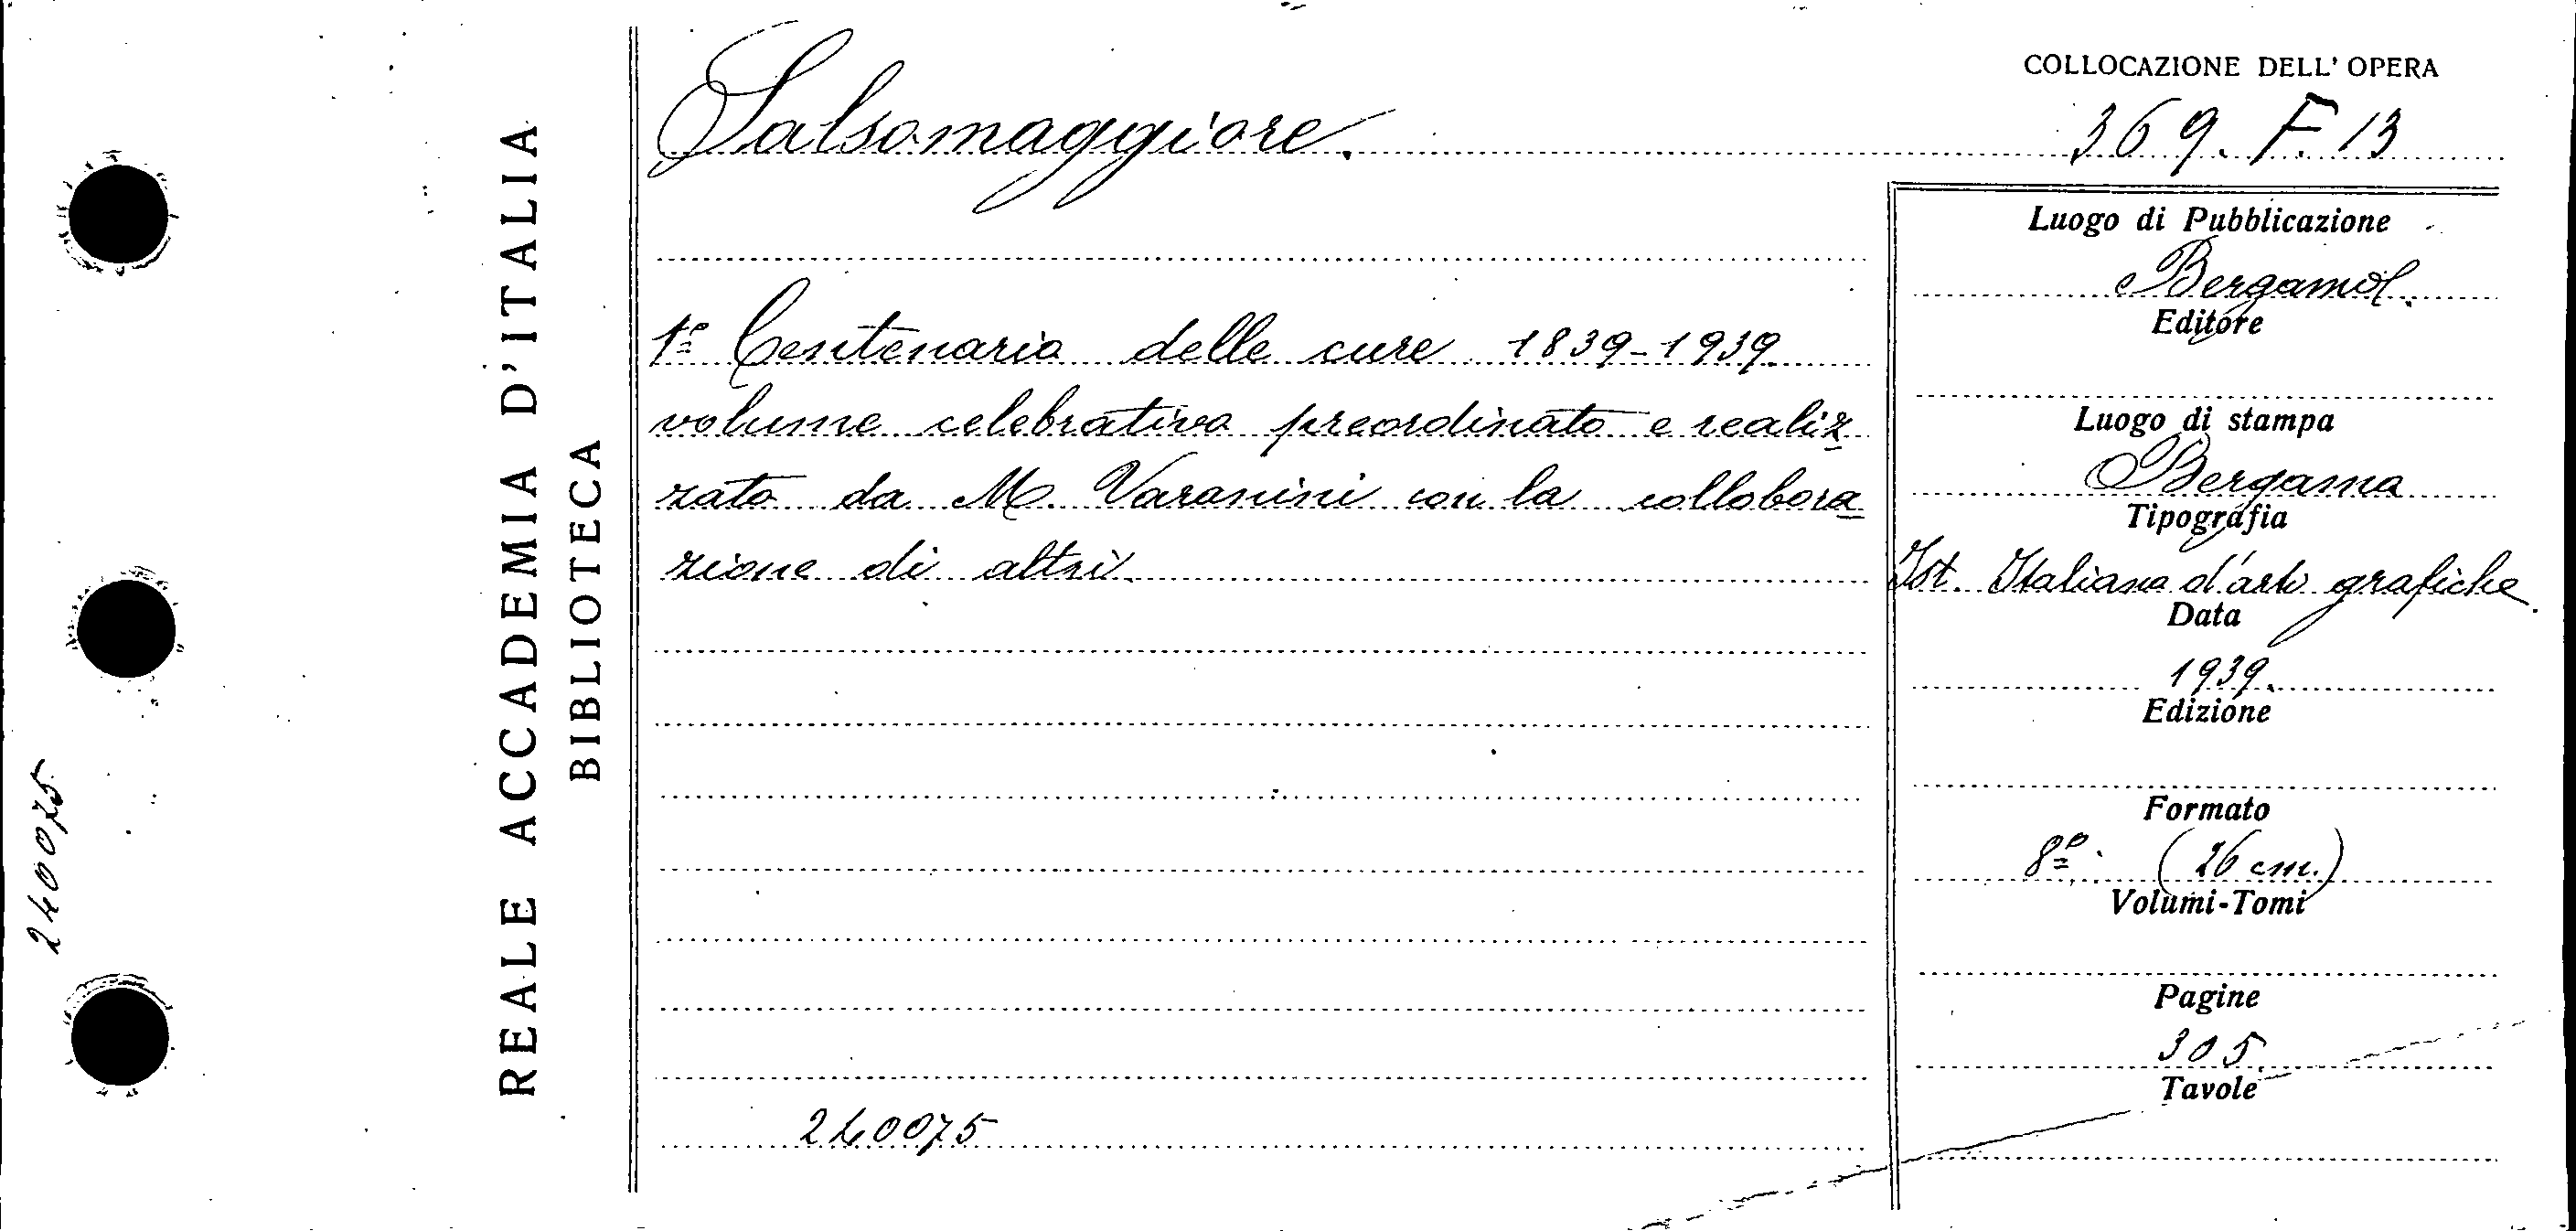 240075
REALE ACCADEMIA D'ITALIA
BIBLIOTECA
Salsomaggiore.
1º Centenario delle cure 1839-1939.
volume celebrativo preordinato e realiz
zato da M. Varanini con la collobora
zione di altri.
240075
COLLOCAZIONE DELL' OPERA
369. F. 13
Luogo di Pubblicazione
Bergamo.
Editore
Luogo di stampa
Bergamo
Tipografia
Ist. Italiano d'arti grafiche.
Data
1939.
Edizione
Formato
8º. (26 cm.)
Volumi-Tomi
Pagine
305.
Tavole